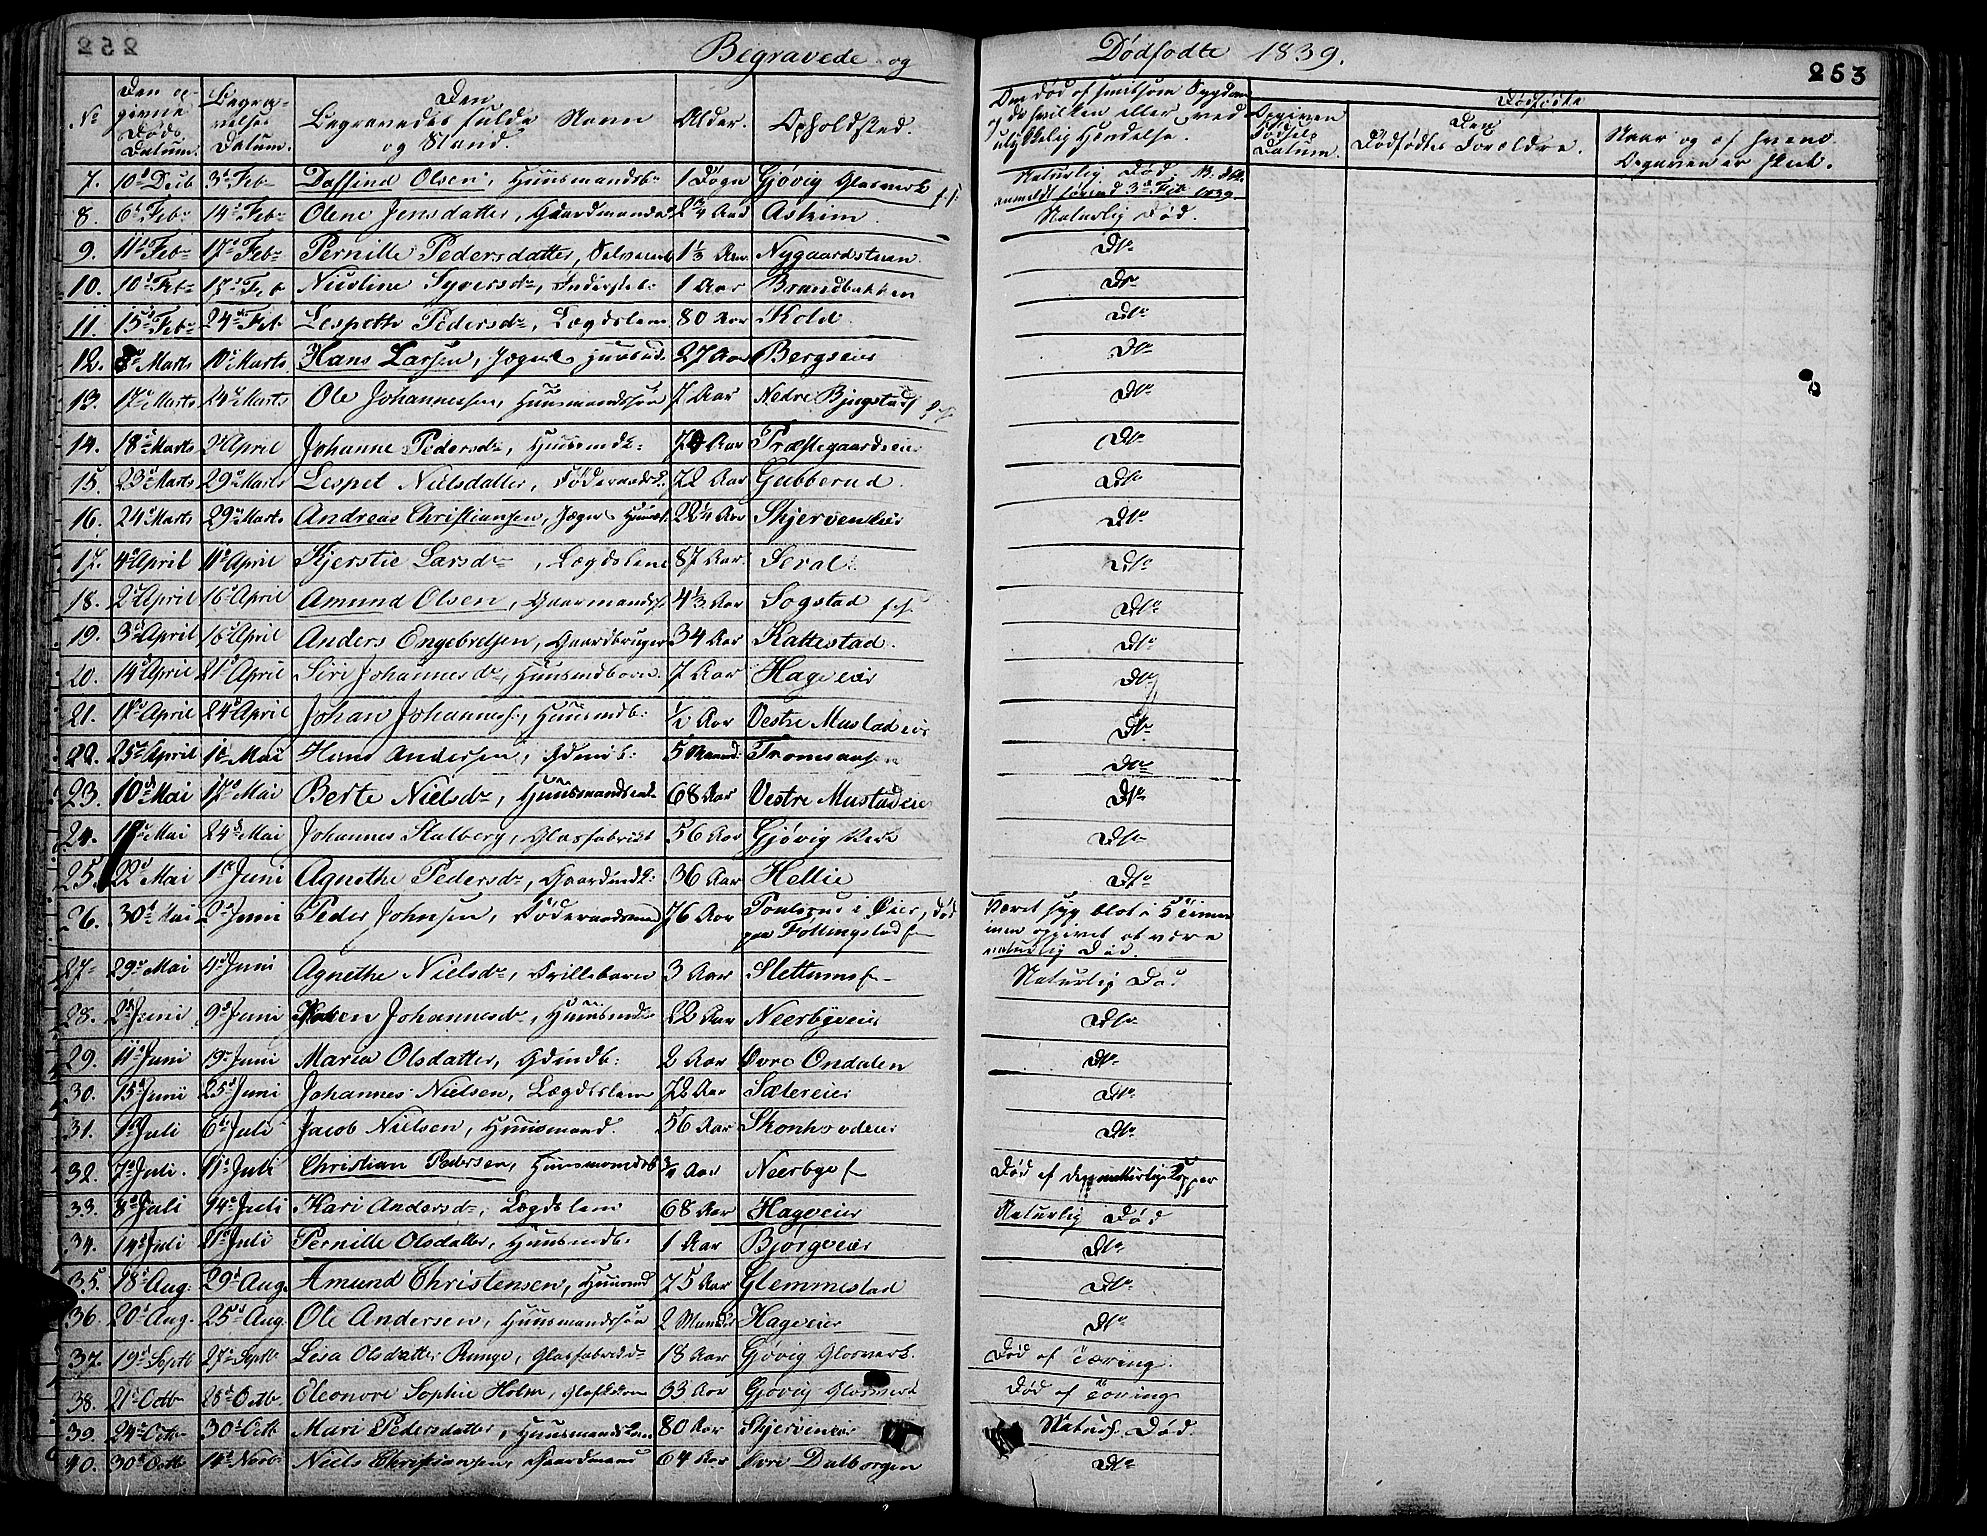 252
Begravede og Dødfødte 1839.
253
No
Den opgivne Døds Datum.
Begravelses Datum.
Den Begravedes fulde Navn og Stand.
Alder.
Opholdsted.
Dødfødte
Opgiven Fødsels Datum.
Den Dødfødtes Forældre.
Naar og af hvem Opgaven er skeet.
7. 10d Decb 3d Feb Olsen, Huusmandsb: 1 Døgn Gjøvig Glasverk Naturlig Død. anmeldt 3d Feb 1839
8. 6d Feb: 14d Feb: Olene Jensdatter, Gaardmandsd 2¼ Aar Askim Naturlig Død.
9. 11d Feb 17d Feb Pernille Pedersdatter, 1½ Aar Nygaardsteen Do
10. 10d Feb 17d Feb Syversdr, Indersteb: 1 Aar Brandbakken Do
11. 15d Feb 24d Feb Lespeth Pedersdr, Lægdslem 80 Aar Kold Do
12. 8d Marts 10d Marts Hans Larsen, Jæger 27 Aar Bergseier Do
13. 17d Marts 24d Marts Ole Johannessen, Huusmandssøn 7 Aar Nedre Bjugstad Do
14. 18d Marts 2d April Johanne Pedersdr, Huusmdk: 70 Aar Præstegaardseier Do
15. 23d Marts 29d Marts Lespet Nielsdatter, Føderaadsk: 72 Aar Gubberud. Do
16. 24d Marts 29d Marts Andreas Christiansen, Jæger 22¼ Aar Skjervenseier Do
17. 4d April 11d April Kjerstie Larsdr, Lægdslem 87 Aar Do
18. 2d April 16d April Amund Olsen, Gaarmandss: 4⅓ Aar Sogstad Do
19. 3d April 16d April Anders Engebretsen, Gaardbruger 34 Aar Kattestad. Do
20. 14d April 21d April Siri Johannesdr, Huusmdbarn 7 Aar Hageeier Do
21. 18d April 24d April Johan Johannes:, Huusmdb: ½ Aar Vestre Mustadeier Do
22. 25d April 1d Mai Hans Andersen, Gdmdb: 5 Maand: Do
23. 10d Mai 17d Mai Berte Nielsdr, Huusmandsenke 68 Aar Vestre Mustadeier Do
24. 17d Mai 24d Mai Johannes Stalberg, Glasfabrikt 56 Aar Gjøvig Verk Do
25. 22d Mai 1d Juni Agnethe Pedersdr, Gaardmdk: 36 Aar Hellie Do
26. 30d Mai 2d Juni Peder Johnsen, Føderaadsmand 76 Aar i Øier, død paa Føllingstad Været syg blot i 5 Timer opgivet at være naturlig Død.
27 29d Mai 4d Juni Agnethe Nielsdr, Drillebarn 3 Aar Slettum Naturlig Død
28. 2d Juni 9d Juni Karen Johannesdr, Huusmdk 22 Aar Neerbyeier Do
29. 11d Juni 19d Juni Maria Olsdatter, Gdmdb: 2 Aar Øvre Ondalen Do
30. 15d Juni 25d Juni Johannes Nielsen, Lægdslem 72 Aar Sætereier Do
31. 1d Juli 6d Juli Jacob Nielsen, Huusmand. 56 Aar Skonhovdeier Do
32. 7d Juli. 11d Juli Christian Pedersen, Huusmandsb ¾ Aar Neerbye Død af de naturlige Kopper
33. 8d Juli 14d Juli Kari Andersdr, Lægdslem 68 Aar Hageeier Naturlig Død
34. 14d Juli 21d Juli Pernille Olsdatter, Huusmdb: 1 Aar Bjørgeeier Do
35. 18d Aug: 29d Aug. Amund Christensen, Huusmd 75 Aar Glemmestad Do
36. 20d Aug. 25d Aug. Ole Andersen, Huusmandssøn 2 Maaneder Hageeier Do
37. 19d Septb 27d Septb Lisa Olsdatter Runge, Glasfabrikd 18 Aar Gjøvig Glasverk. Død af Tæring.
38. 21d Octb 28d Octb Eleonore Sophie Holm, 33 Aar Gjøvig Glasverk Død af Tæring
39. 24d Octb 30d Octb Mari Pedersdatter, Huusmandsk: 80 Aar Skjerveneier Naturl. Død.
40. 30d Octb 14d Novb Niels Christiansen, Gaardmand 64 Aar Øvre Dalborgen Do